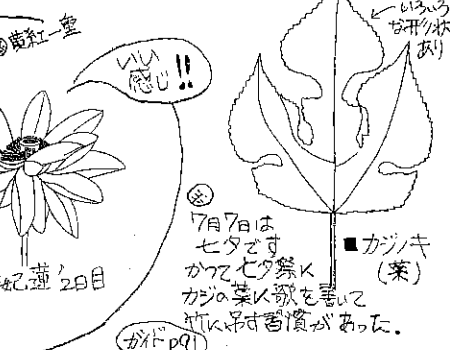 黄紅一重
いい
感じ!!
いろいろ
な形状
あり
妃蓮'2日目
7月7日は
七夕です
かつて七夕祭に
カジの葉に歌を書いて
竹に吊す習慣があった.
■カジノキ
(葉)
ガイドP91